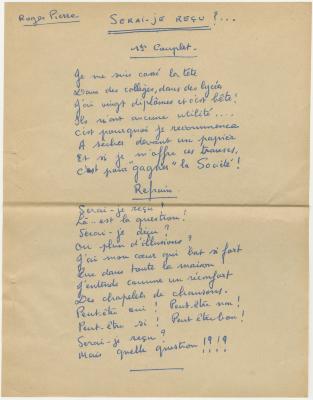 Roger Pierre
SERAI-JE REÇU ?...
1er Couplet.
Je me suis cassé la tête
Dans des collèges, dans des lycées
J'ai vingt diplômes et c'est bête !
Ils n'ont aucune utilité....
C'est pourquoi je recommence
A sécher devant un papier
Et si je m'offre ces transes,
C'est pour "gagner" la Société !
Refrain.
Serai-je reçu !
Là.. est la question !
Serai-je déçu ?
Ou plein d'illusions ?
J'ai mon cœur qui bat si fort
Que dans toute la maison
J'entends comme un réconfort
Des chapelets de chansons.
Peut-être oui ! Peut-être non !
Peut-être si ! Peut-être bon !
Serai-je reçu ?
Mais quelle question !?!?